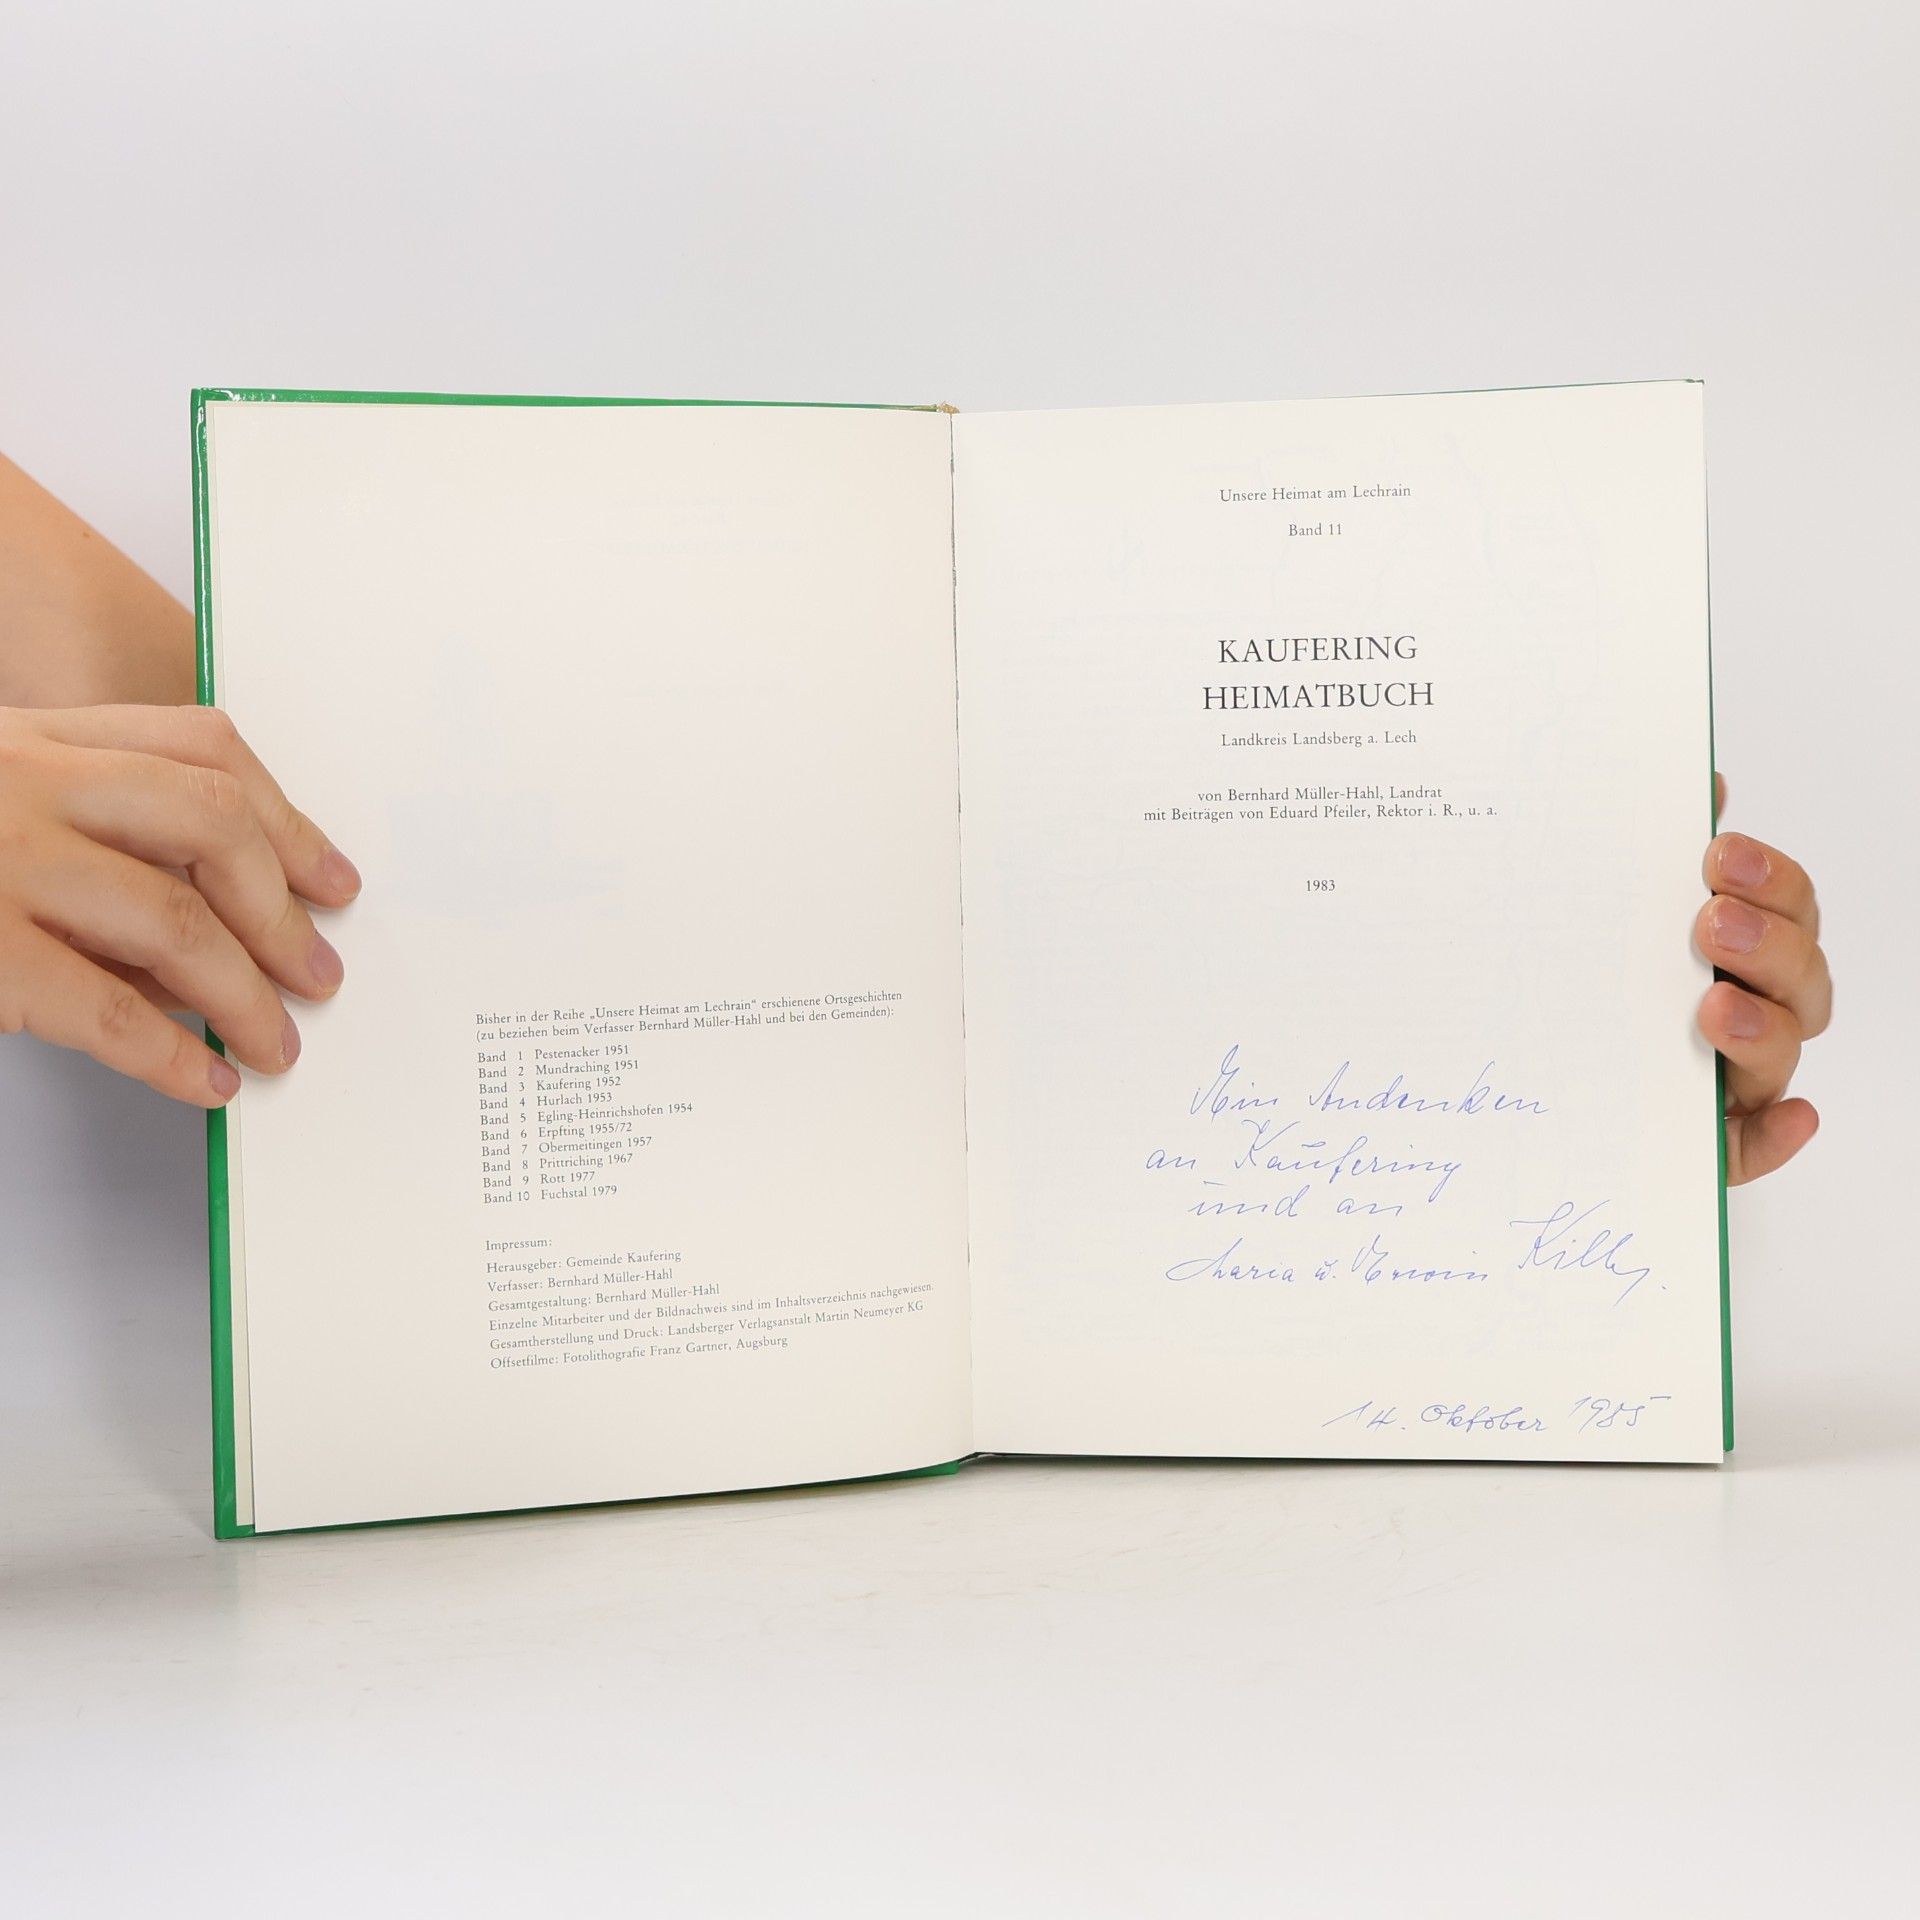 Bisher in der Reihe „Unsere Heimat am Lechrain“ erschienene Ortsgeschichten
(zu beziehen beim Verfasser Bernhard Müller-Hahl und bei den Gemeinden):
Band 1 Pestenacker 1951
Band 2 Mundraching 1951
Band 3 Kaufering 1952
Band 4 Hurlach 1953
Band 5 Egling-Heinrichshofen 1954
Band 6 Erpfting 1955/72
Band 7 Obermeitingen 1957
Band 8 Prittriching 1967
Band 9 Rott 1977
Band 10 Fuchstal 1979
Impressum:
Herausgeber: Gemeinde Kaufering
Verfasser: Bernhard Müller-Hahl
Gesamtgestaltung: Bernhard Müller-Hahl
Einzelne Mitarbeiter und der Bildnachweis sind im Inhaltsverzeichnis nachgewiesen.
Gesamtherstellung und Druck: Landsberger Verlagsanstalt Martin Neumeyer KG
Offsetfilme: Fotolithografie Franz Gartner, Augsburg
Unsere Heimat am Lechrain
Band 11
KAUFERING
HEIMATBUCH
Landkreis Landsberg a. Lech
von Bernhard Müller-Hahl, Landrat
mit Beiträgen von Eduard Pfeiler, Rektor i. R., u. a.
1983
Ein Andenken
an Kaufering
und an
Maria u. Erwin
14. Oktober 1985